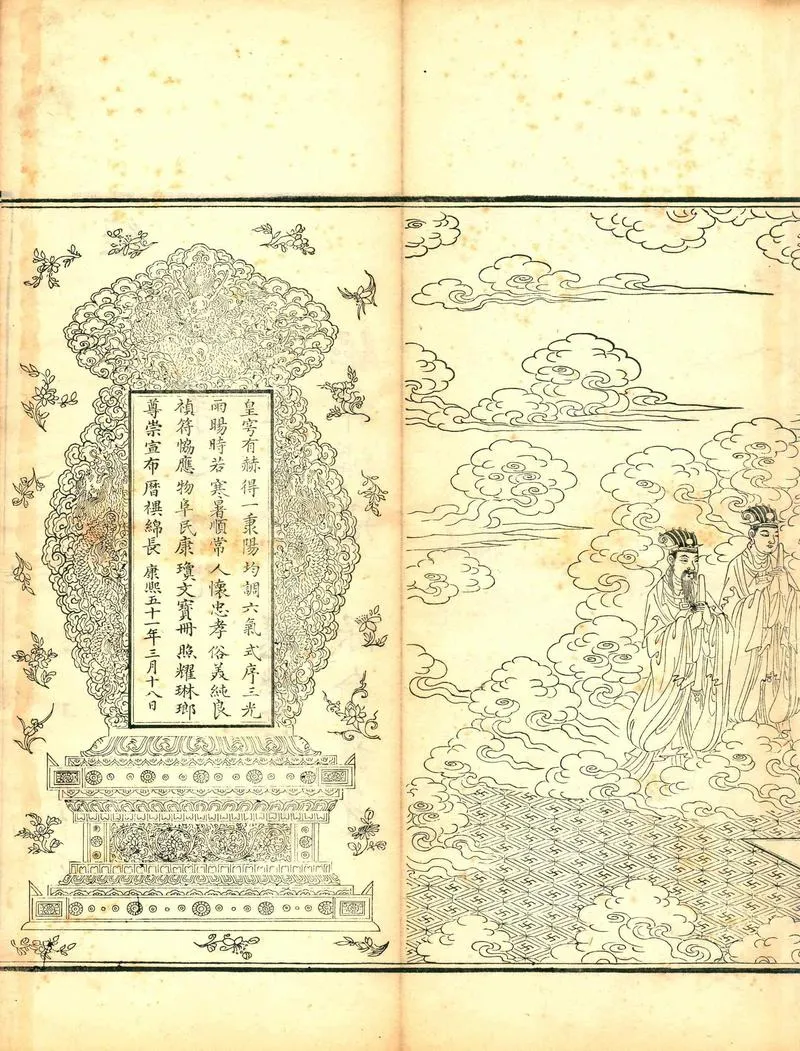 皇穹有赫 得一秉陽 均調六氣 式序三光
雨暘時若 寒暑順常 人懷忠孝 俗美純良
禎符恊應 物阜民康 瓊文寶冊 照耀琳瑯
尊崇宣布 曆禩綿長 康熙五十一年三月十八日